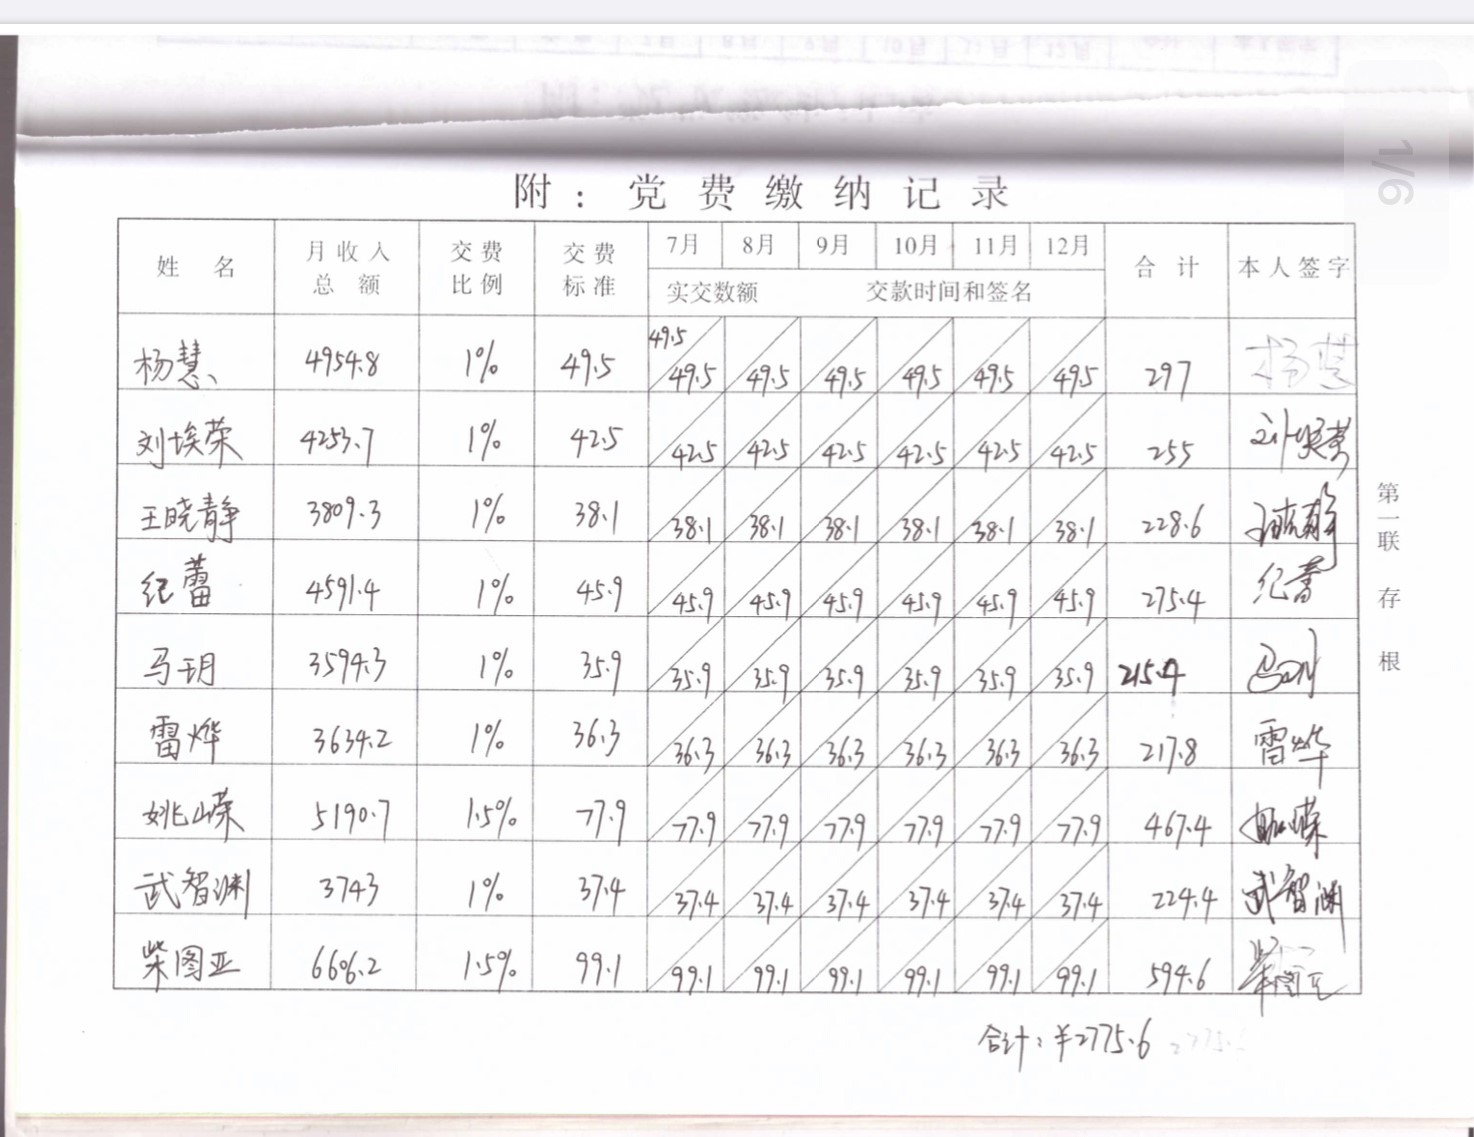 1/6
附：党费缴纳记录
姓名 月收入总额 交费比例 交费标准 7月 8月 9月 10月 11月 12月 合计 本人签字
实交数额 交款时间和签名
49.5
杨慧 4954.8 1% 49.5 49.5 49.5 49.5 49.5 49.5 49.5 297 杨慧
刘埃荣 4253.7 1% 42.5 42.5 42.5 42.5 42.5 42.5 42.5 255 刘埃荣
王晓静 3809.3 1% 38.1 38.1 38.1 38.1 38.1 38.1 38.1 228.6 王晓静
纪蕾 4591.4 1% 45.9 45.9 45.9 45.9 45.9 45.9 45.9 275.4 纪蕾
马玥 3594.3 1% 35.9 35.9 35.9 35.9 35.9 35.9 35.9 215.4
雷烨 3634.2 1% 36.3 36.3 36.3 36.3 36.3 36.3 36.3 217.8 雷烨
姚嵘 5190.7 1.5% 77.9 77.9 77.9 77.9 77.9 77.9 77.9 467.4
武智渊 3743 1% 37.4 37.4 37.4 37.4 37.4 37.4 37.4 224.4 武智渊
柴图亚 6606.2 1.5% 99.1 99.1 99.1 99.1 99.1 99.1 99.1 594.6 柴图亚
合计：¥2775.6
第一联 存根